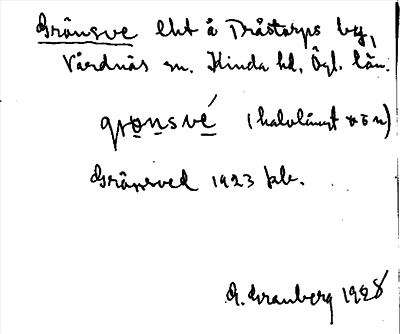 Grânsve lht å Tråstorps by,
Vårdnäs sn. Kinda hd, Ögl. län.
gronsvé (halvlångt ö o n)
Gränsved 1923 jdr.
G. Granberg 1928